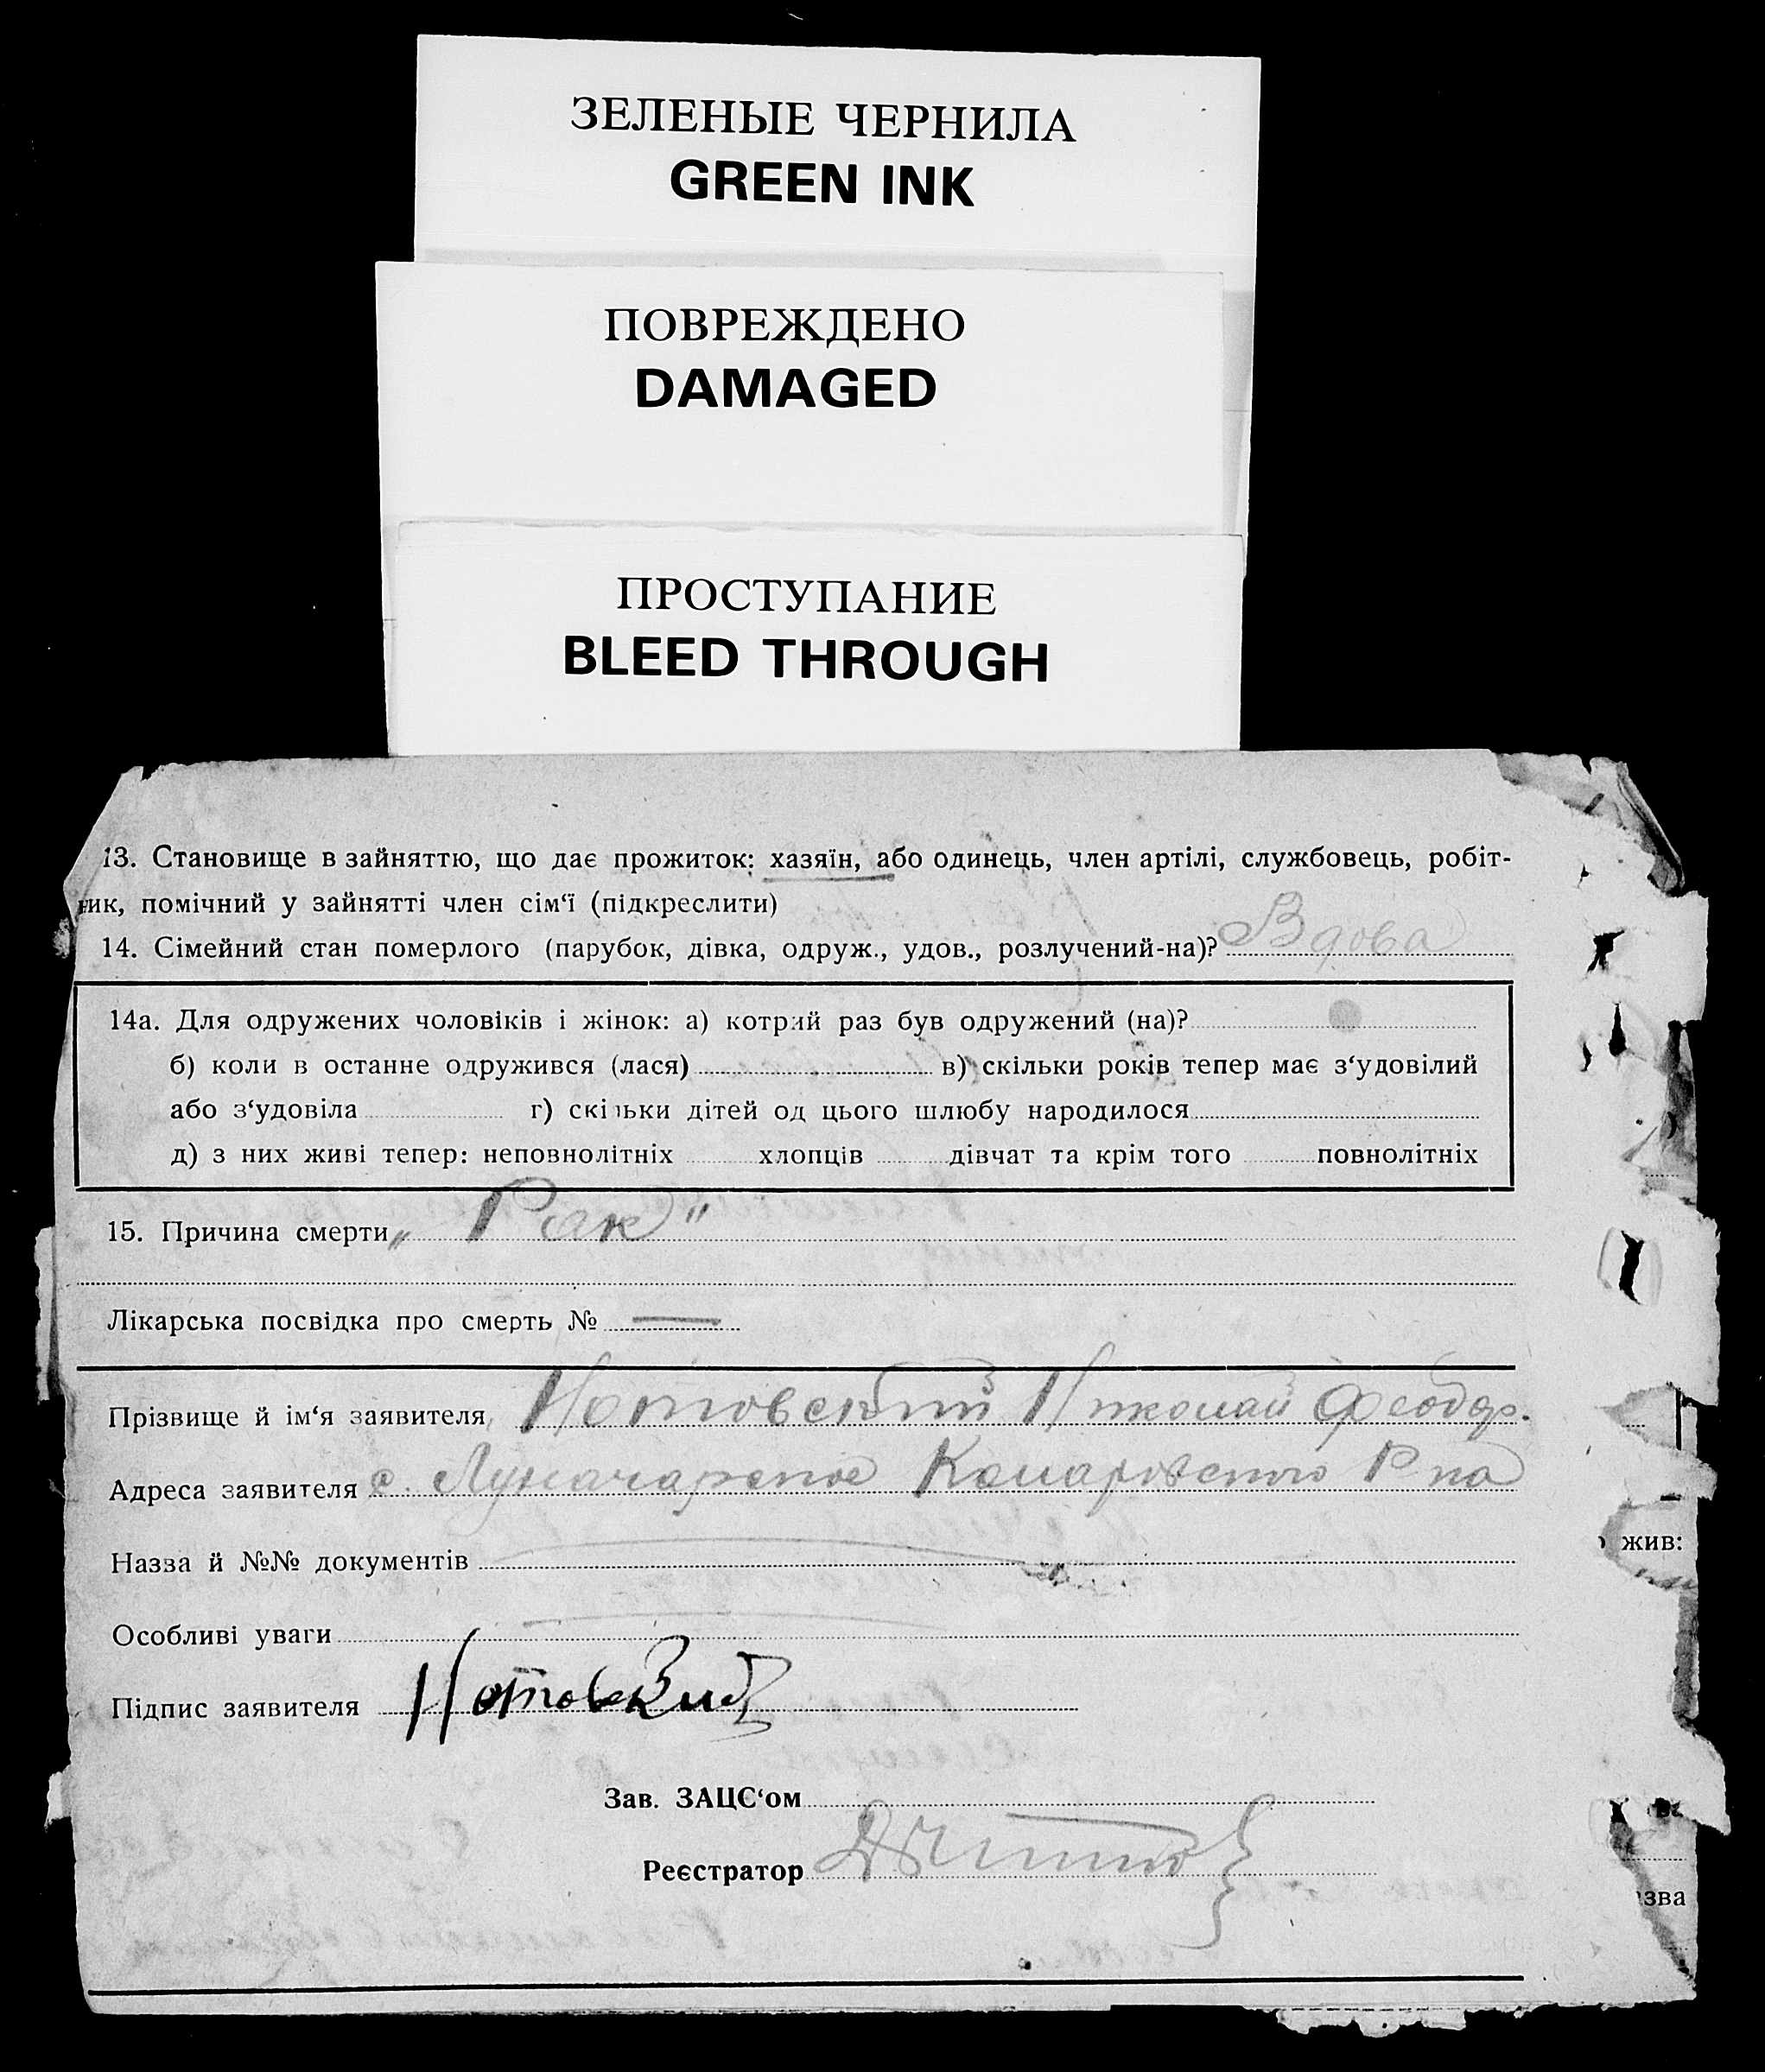 ЗЕЛЕНЫЕ ЧЕРНИЛА
GREEN INK
ПОВРЕЖДЕНО
DAMAGED
ПРОСТУПАНИЕ
BLEED THROUGH
13. Становище в зайняттю, що дає прожиток: хазяїн, або одинець, член артілі, службовець, робіт-
ник, помічний у зайнятті член сім‘ї (підкреслити)
14. Сімейний стан померлого (парубок, дівка, одруж., удов., розлучений-на)? Вдова
14а. Для одружених чоловіків і жінок: а) котрий раз був одружений (на)?
б) коли в останне одружився (лася) в) скільки років тепер має з‘удовілий
або з‘удовіла г) скільки дітей од цього шлюбу народилося
д) з них живі тепер: неповнолітніх хлопців дівчат та крім того повнолітніх
15. Причина смерти „Рак"
Лікарська посвідка про смерть № —
Прізвище й ім‘я заявителя Нотовский Николай Феодор.
Адреса заявителя с. Луначарское Комаровского Р на
Назва й №№ документів
жив:
Особливі уваги
Підпис заявителя Нотовский
Зав. ЗАЦС‘ом
Реєстратор
зва